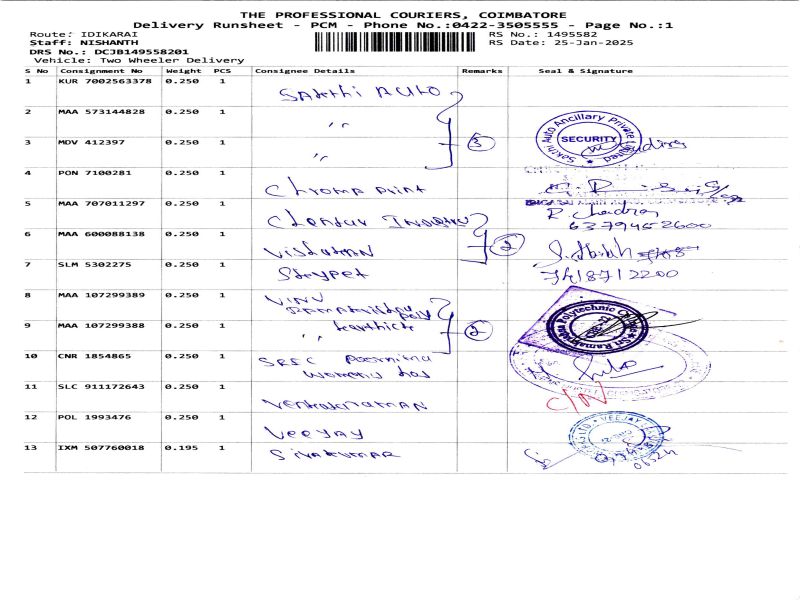 THE PROFESSIONAL COURIERS, COIMBATORE
Delivery Runsheet - PCM - Phone No.:0422-3505555 - Page No.:1
Route: IDIKARAI
RS No.: 1495582
Staff: NISHANTH
RS Date: 25-Jan-2025
DRS No.: DCJB149558201
Vehicle: Two Wheeler Delivery
S No Consignment No Weight PCS Consignee Details Remarks Seal & Signature
1 KUR 7002563378 0.250 1 Sakthi Auto
2 MAA 573144828 0.250 1 "
3 MDV 412397 0.250 1 " 3
Sakthi Auto Ancillary Private Limited
SECURITY
4 PON 7100281 0.250 1 Chroma print
5 MAA 707011297 0.250 1
R Chadran
6379452600
6 MAA 600088138 0.250 1 2
7 SLM 5302275 0.250 1
7418712200
8 MAA 107299389 0.250 1
9 MAA 107299388 0.250 1 " Karthick 2
10 CNR 1854865 0.250 1 Poornima
Womens Hos
11 SLC 911172643 0.250 1 Venkatraman C/N
12 POL 1993476 0.250 1 Veejay
VEEJAY
13 IXM 507760018 0.195 1 Sivakumar